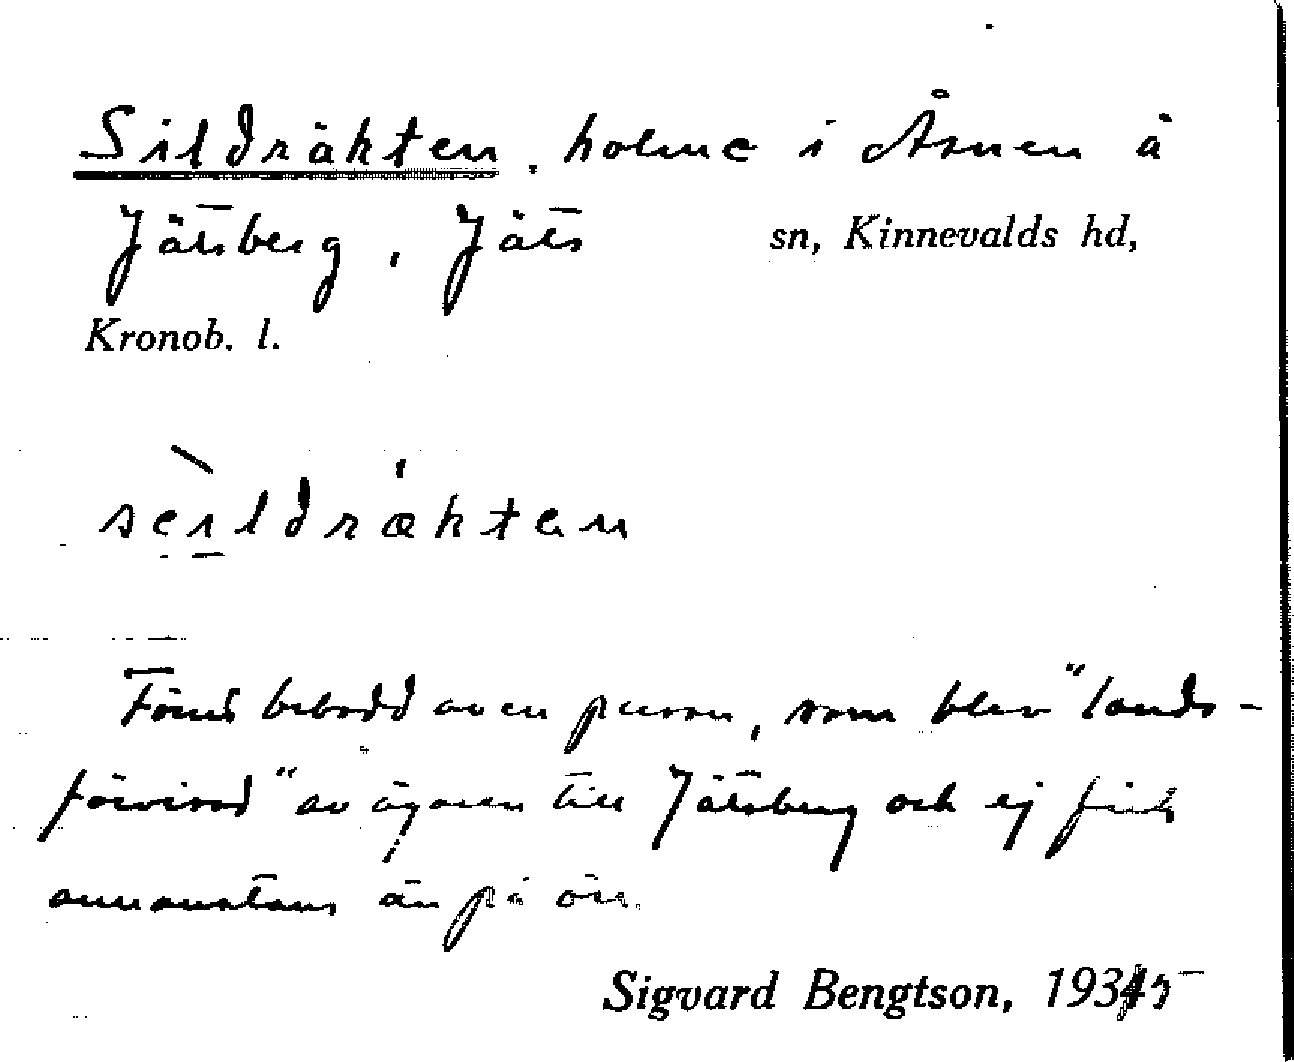 Sildräkten, holme i Åsnen å
Jätsberg, Jäts sn, Kinnevalds hd,
Kronob. l.
seildrækten
Förut bebodd av en person, som blev "lands-
förvisad" av ägaren till Jätsberg och ej fick
annanstans än på ön.
Sigvard Bengtson, 1935